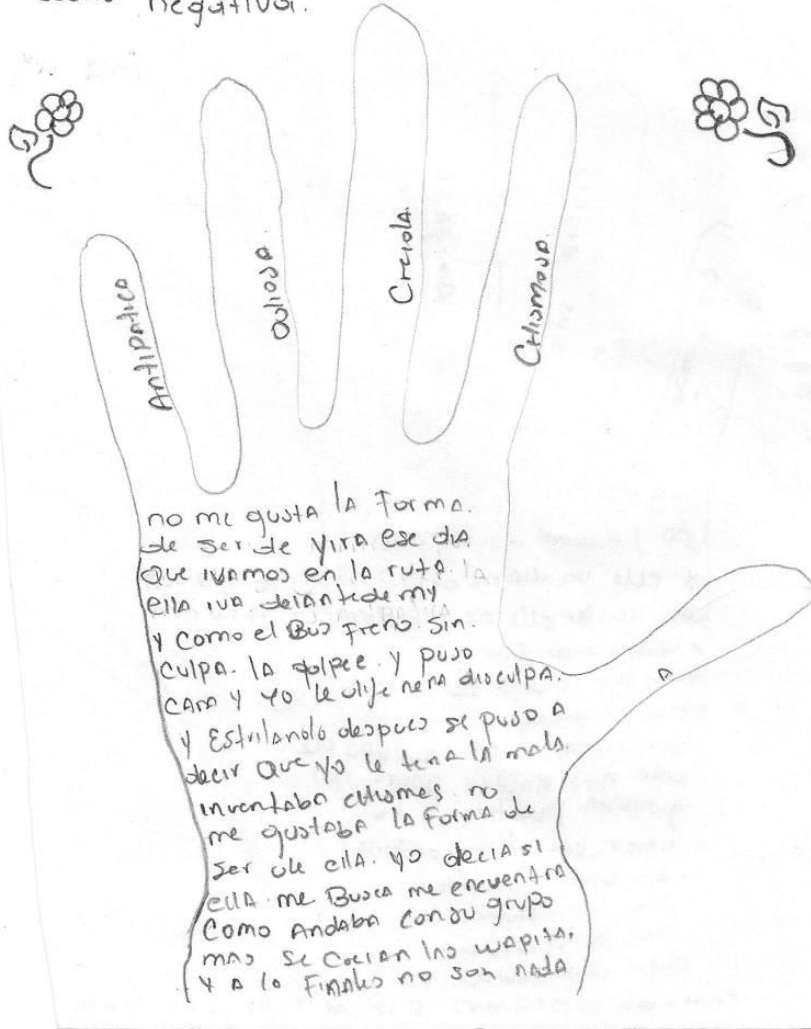 negativa.
Antipatica
Odiosa.
Creida.
Chismosa.
no me gusta la forma.
de ser de Yira ese dia
Que ivamos en la ruta. la
ella iva delante de my
y como el Bus Freno sin.
culpa. la golpee. y puso
cara y yo le dije nena disculpa.
y Estrilando despues se puso a
decir Que yo le tenia la mala
inventaba chismes no
me gustaba la forma de
ser de ella. yo decia si
ella me Busca me encuentra
Como Andaba con su grupo
mas se creian las wapita,
y a lo Finales no son nada